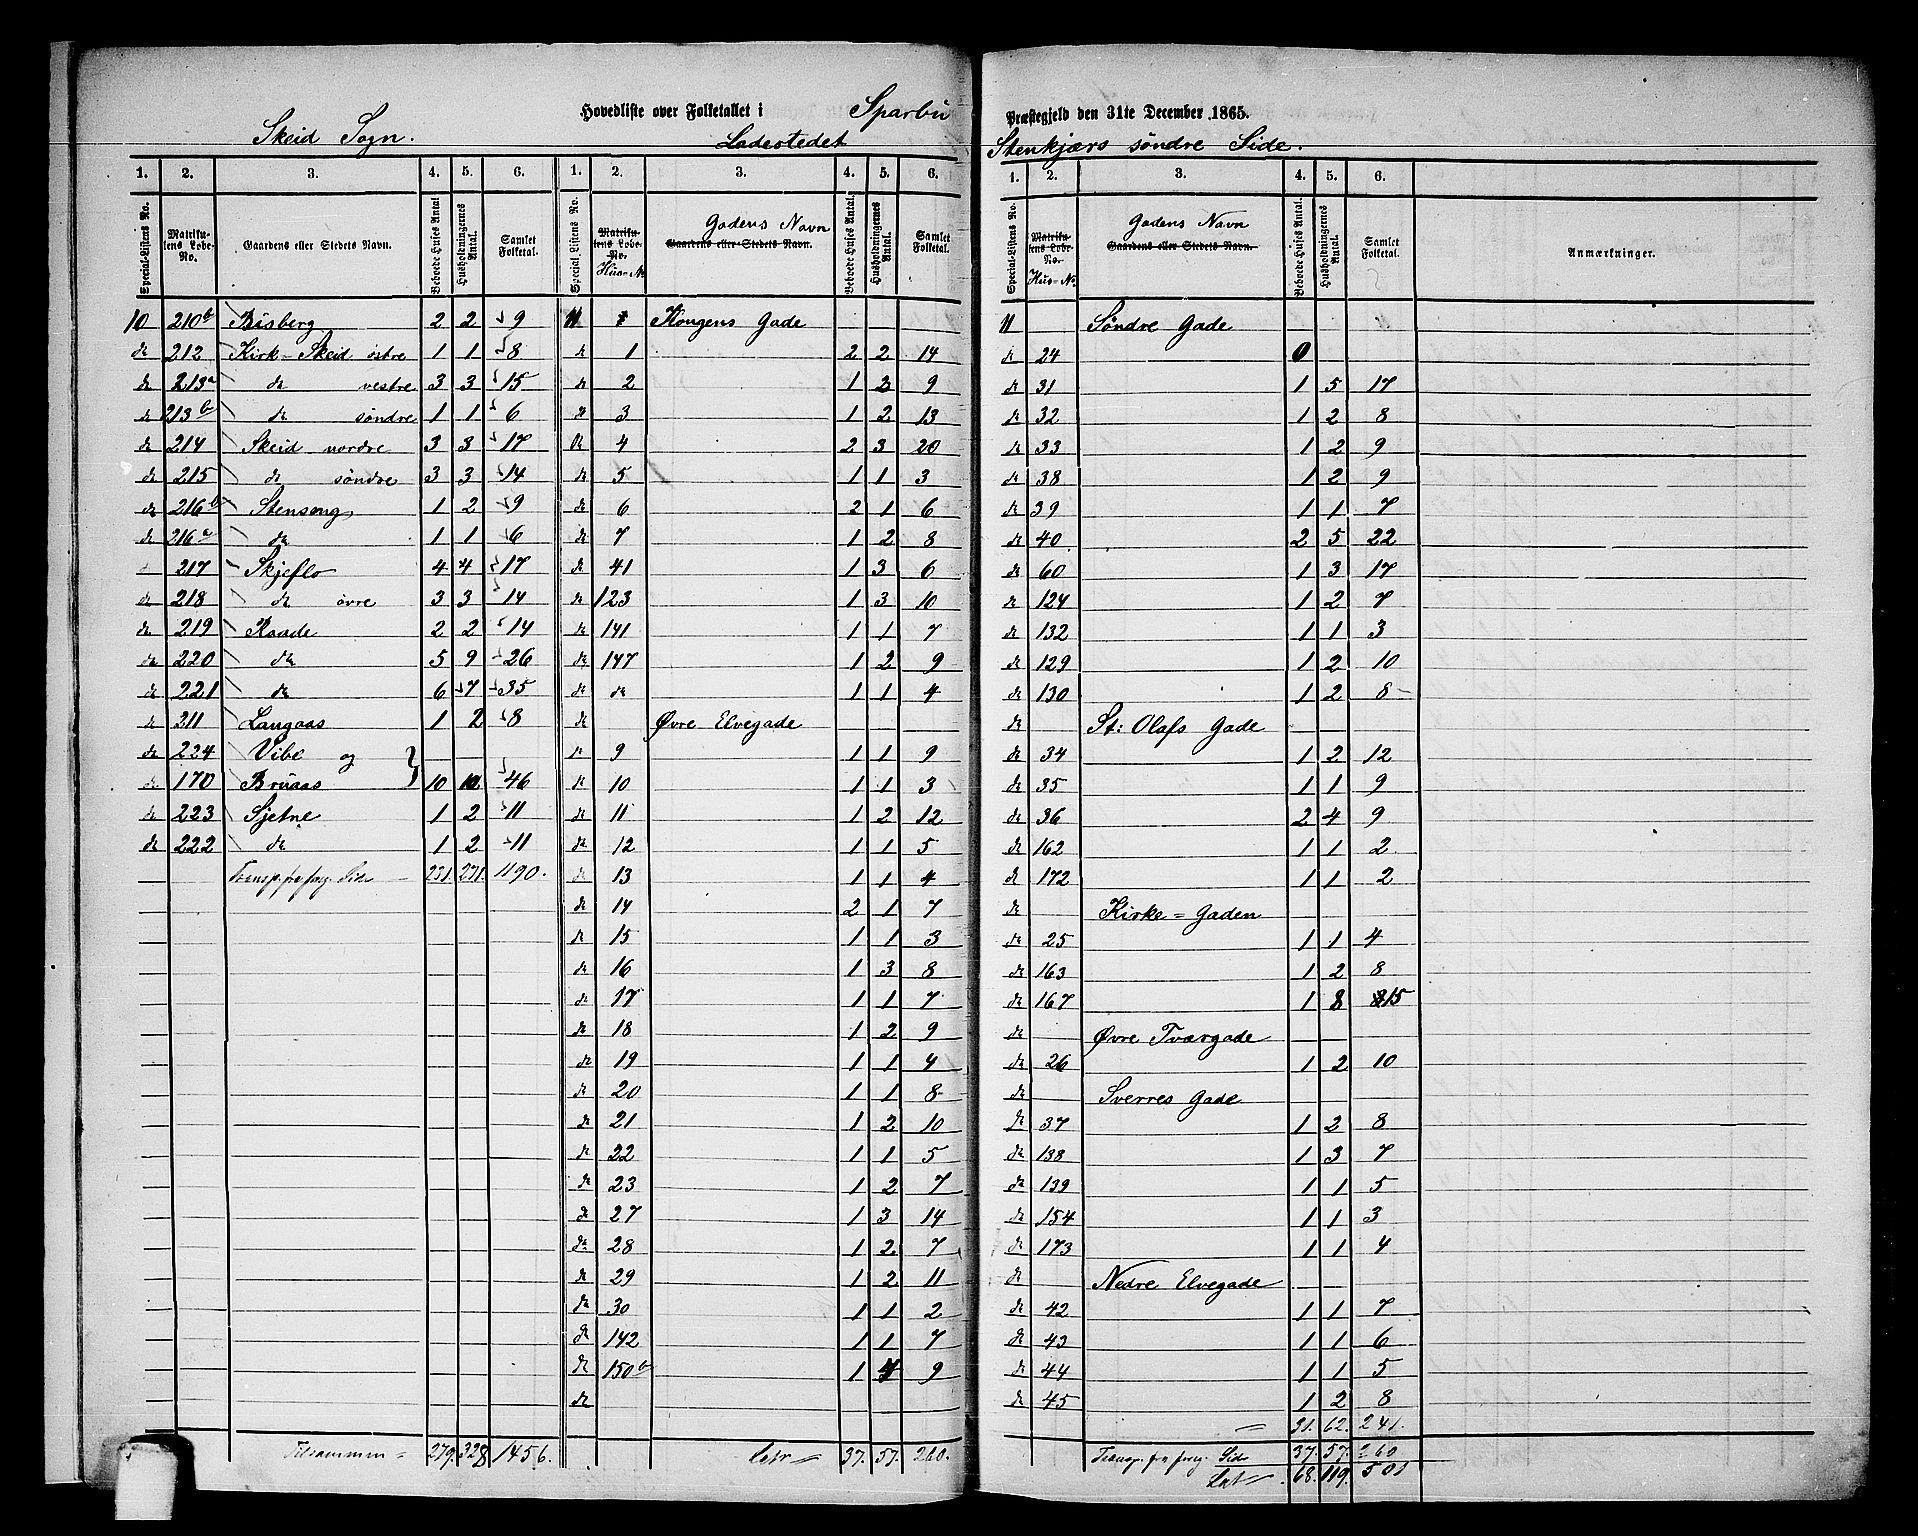 Hovedliste over Folketallet i Sparbu Præstegjeld den 31te December 1865.
Skeid Sogn. Ladestedet Stenkjærs søndre Side.
1. 2. 3. 4. 5. 6.
Special-Listens No. Matrikulens Løbe-No. Gaardens eller Stedets Navn. Beboede Huses Antal Husholdningernes Antal. Samlet Folketal.
10 210b Bisberg 2 2 9
do 212 Kirk-Skeid østre 1 1 8
do 213a do vestre 3 3 15
do 213b do søndre 1 1 6
do 214 Skeid nordre 3 3 17
do 215 do søndre 3 3 14
do 216b Stenseng 1 2 9
do 216a do 1 1 6
217 Skjeflo 4 4 17
do 218 do øvre 3 3 14
do 219 Raade 2 2 14
do 220 do 5 9 26
do 221 do 6 7 35
do 211 Langaas 1 2 8
do 224 Vibe og
do 170 Bruaas 10 10 46
do 223 Sjetne 1 2 11
do 222 do 1 2 11
Transp. fra foreg. Side 231. 271. 1190.
Tilsammen 279. 328 1456.
1. 2. 3. 4. 5. 6.
Special Listens No. Matrikulens Løbe-No. Huus-No. Gadens Navn Gaardens eller Stedets Navn. Beboede Huses Antal. Husholdningernes Antal. Samlet Folketal.
11 Kongens Gade
do 1 2 2 14
do 2 1 2 9
do 3 1 2 13
do 4 2 3 20
do 5 1 1 3
do 6 2 1 6
do 7 1 2 8
do 41 1 3 6
do 123 1 3 10
do 141 1 1 7
do 147 1 2 9
do do 1 1 4
do Øvre Elvegade
do 9 1 1 9
do 10 1 1 3
do 11 1 2 12
do 12 1 1 5
do 13 1 1 4
do 14 2 1 7
do 15 1 1 3
do 16 1 3 8
do 17 1 1 7
do 18 1 2 9
do 19 1 1 4
do 20 1 1 8
do 21 1 2 10
do 22 1 1 5
do 23 1 2 7
do 27 1 3 14
do 28 1 2 7
do 29 1 2 11
do 30 1 1 2
do 142 1 1 7
do 150b 1 4 9
do
Latr 37. 57. 260.
1. 2. 3. 4. 5. 6.
Special-Listens No. Matrikulens Løbe-No. Huus-No. Gadens Navn Gaardens eller Stedets Navn. Beboede Huses Antal. Husholdningernes Antal. Samlet Folketal. Anmærkninger.
11 Søndre Gade
do 24 0
do 31 1 5 17
do 32 1 2 8
do 33 1 2 9
do 38 1 2 9
do 39 1 1 7
do 40 2 5 22
do 60 1 3 17
do 124 1 2 7
do 132 1 1 3
do 129 1 2 10
do 130 1 2 8
do St: Olafs Gade
do 34 1 2 12
do 35 1 1 9
do 36 2 4 9
do 162 1 1 2
do 172 1 1 2
do Kirke=Gaden
do 25 1 1 4
do 163 1 2 8
do 167 1 8 15
do Øvre Tværgade
do 26 1 2 10
do Sverres Gade
do 37 1 2 8
do 138 1 3 7
do 139 1 1 5
do 154 1 1 3
do 173 1 1 4
do Nedre Elvegade
do 42 1 1 7
do 43 1 1 6
do 44 1 1 5
do 45 1 2 8
31. 62. 241.
Transp. fra foreg. Side 37. 57. 260
Lat 68. 119. 501